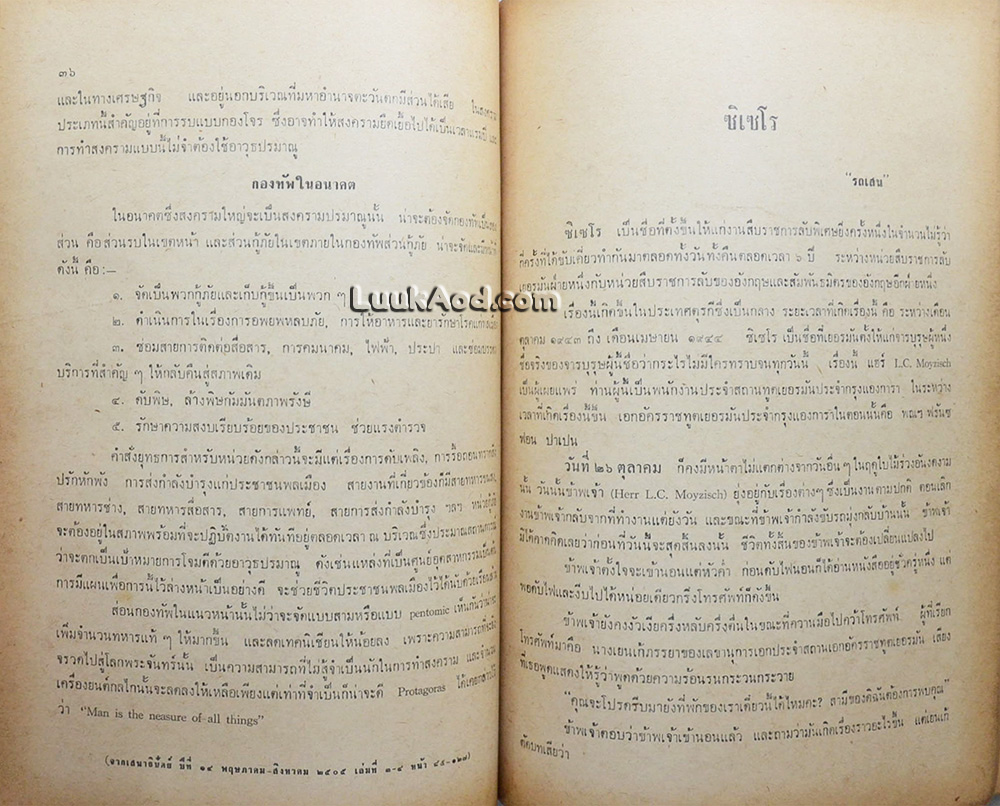 ๓๖
และในทางเศรษฐกิจ และอยู่นอกบริเวณที่มหาอำนาจตะวันตกมีส่วนได้เสีย ในสงคราม
ประเภทนี้สำคัญอยู่ที่การรบแบบกองโจร ซึ่งอาจทำให้สงครามยืดเยื้อไปได้เป็นเวลาแรมปี และ
การทำสงครามแบบนี้ไม่จำต้องใช้อาวุธปรมาณู
กองทัพในอนาคต
ในอนาคตซึ่งสงครามใหญ่จะเป็นสงครามปรมาณูนั้น น่าจะต้องจัดกองทัพเป็นสอง
ส่วน คือส่วนรบในเขตหน้า และส่วนกู้ภัยในเขตภายในกองทัพส่วนกู้ภัย น่าจะจัดและมีหน้าที่
ดังนี้ คือ:—
๑. จัดเป็นพวกกู้ภัยและเก็บกู้ขึ้นเป็นพวก ๆ
๒. ดำเนินการในเรื่องการอพยพหลบภัย, การให้อาหารและยารักษาโรคแก่
๓. ซ่อมสายการติดต่อสื่อสาร, การคมนาคม, ไฟฟ้า, ประปา และซ่อม
บริการที่สำคัญ ๆ ให้กลับคืนสู่สภาพเดิม
๔. ดับพิษ, ล้างพิษกัมมันตภาพรังษี
๕. รักษาความสงบเรียบร้อยของประชาชน ช่วยแรงตำรวจ
คำสั่งยุทธการสำหรับหน่วยดังกล่าวนี้จะมีแต่เรื่องการดับเพลิง, การรื้อถอน
ปรักหักพัง การส่งกำลังบำรุงแก่ประชาชนพลเมือง สายงานที่เกี่ยวข้องก็มีสายทหารขนส่ง,
สายทหารช่าง, สายทหารสื่อสาร, สายการแพทย์, สายการส่งกำลังบำรุง ฯลฯ หน่วยกู้ภัย
จะต้องอยู่ในสภาพพร้อมที่จะปฏิบัติงานได้ทันทีอยู่ตลอดเวลา ณ บริเวณซึ่งประมาณสถานการณ์
ว่าจะตกเป็นเป้าหมายการโจมตีด้วยอาวุธปรมาณู ดังเช่นแหล่งที่เป็นศูนย์อุตสาหกรรมเป็นต้น
การมีแผนเพื่อการนี้ไว้ล่างหน้าเป็นอย่างดี จะช่วยชีวิตประชาชนพลเมืองไว้ได้นับด้วย
ส่อนกองทัพในแนวหน้านั้นไม่ว่าจะจัดแบบสามหรือแบบ pentomic เห็นกันว่าน่าจะ
เพิ่มจำนวนทหารแท้ ๆ ให้มากขึ้น และลดเทคนิเชียนให้น้อยลง เพราะความสามารถที่จะส่ง
จรวดไปสู่โลกพระจันทร์นั้น เป็นความสามารถที่ไม่สู้จำเป็นนักในการทำสงคราม และจำนวน
เครื่องยนต์กลไกนั้นจะลดลงให้เหลือเพียงแต่เท่าที่จำเป็นก็น่าจะดี Protagoras ได้เคยกล่าวไว้
ว่า "Man is the neasure of all things"
(จากเสนาธิปัตย์ ปีที่ ๑๔ พฤษภาคม-สิงหาคม ๒๕๐๕ เล่มที่ ๓-๔ หน้า ๔๕-๑๒๗)
ซิเซโร
"รถเสน"
ซิเซโร เป็นชื่อที่ตั้งขึ้นให้แก่งานสืบราชการลับพิเศษยิ่งครั้งหนึ่งในจำนวนไม่รู้ว่า
กี่ครั้งที่ได้ขับเคี่ยวทำกันมาตลอดทั้งวันทั้งคืนตลอดเวลา ๖ ปี ระหว่างหน่วยสืบราชการลับ
เยอรมันฝ่ายหนึ่งกับหน่วยสืบราชการลับของอังกฤษและสัมพันธมิตรของอังกฤษอีกฝ่ายหนึ่ง
เรื่องนี้เกิดขึ้นในประเทศตุรกีซึ่งเป็นกลาง ระยะเวลาที่เกิดเรื่องนี้ คือ ระหว่างเดือน
ตุลาคม ๑๙๔๓ ถึง เดือนเมษายน ๑๙๔๔ ซิเซโร เป็นชื่อที่เยอรมันตั้งให้แก่จารบุรุษผู้หนึ่ง
ชื่อจริงของจารบุรุษผู้นี้ชื่อว่ากระไรไม่มีใครทราบจนทุกวันนี้ เรื่องนี้ แฮร์ L.C. Moyzisch
เป็นผู้เผยแพร่ ท่านผู้นี้เป็นพนักงานประจำสถานทูตเยอรมันประจำกรุงแองการา ในระหว่าง
เวลาที่เกิดเรื่องนี้ขึ้น เอกอัครราชทูตเยอรมันประจำกรุงแองการาในตอนนั้นคือ พณฯ ฟรันซ
ฟอน ปาเปน
วันที่ ๒๖ ตุลาคม ก็คงมีหน้าตาไม่แตกต่างจากวันอื่น ๆ ในฤดูใบไม้ร่วงอันงดงาม
นั้น วันนั้นข้าพเจ้า (Herr L.C. Moyzisch) ยุ่งอยู่กับเรื่องต่างๆ ซึ่งเป็นงานตามปกติ ตอนเลิก
งานข้าพเจ้ากลับจากที่ทำงานแต่ยังวัน และขณะที่ข้าพเจ้ากำลังขับรถมุ่งกลับบ้านนั้น ข้าพเจ้า
มิได้คาดคิดเลยว่าก่อนที่วันนี้จะสุดสิ้นลงนั้น ชีวิตทั้งสิ้นของข้าพเจ้าจะต้องเปลี่ยนแปลงไป
ข้าพเจ้าตั้งใจจะเข้านอนแต่หัวค่ำ ก่อนดับไฟนอนก็ได้อ่านหนังสืออยู่ชั่วครู่หนึ่ง แต่
พอดับไฟและงีบไปได้หน่อยเดียวกริ่งโทรศัพท์ก็ดังขึ้น
ข้าพเจ้ายังคงงัวเงียครึ่งหลับครึ่งตื่นในขณะที่ควานมือไปคว้าโทรศัพท์ ผู้ที่เรียก
โทรศัพท์มาคือ นางเยนเก้ภรรยาของเลขานุการเอกประจำสถานเอกอัครราชทูตเยอรมัน เสียง
ที่เธอพูดแสดงให้รู้ว่าพูดด้วยความร้อนรนกระวนกระวาย
"คุณจะโปรดรีบมายังที่พักของเราเดี๋ยวนี้ได้ไหมคะ? สามีของดิฉันต้องการพบคุณ"
ข้าพเจ้าตอบว่าข้าพเจ้าเข้านอนแล้ว และถามว่ามันเกิดเรื่องราวอะไรขึ้น แต่เยนเก้
ตัดบทเสียว่า
LuukAod.com